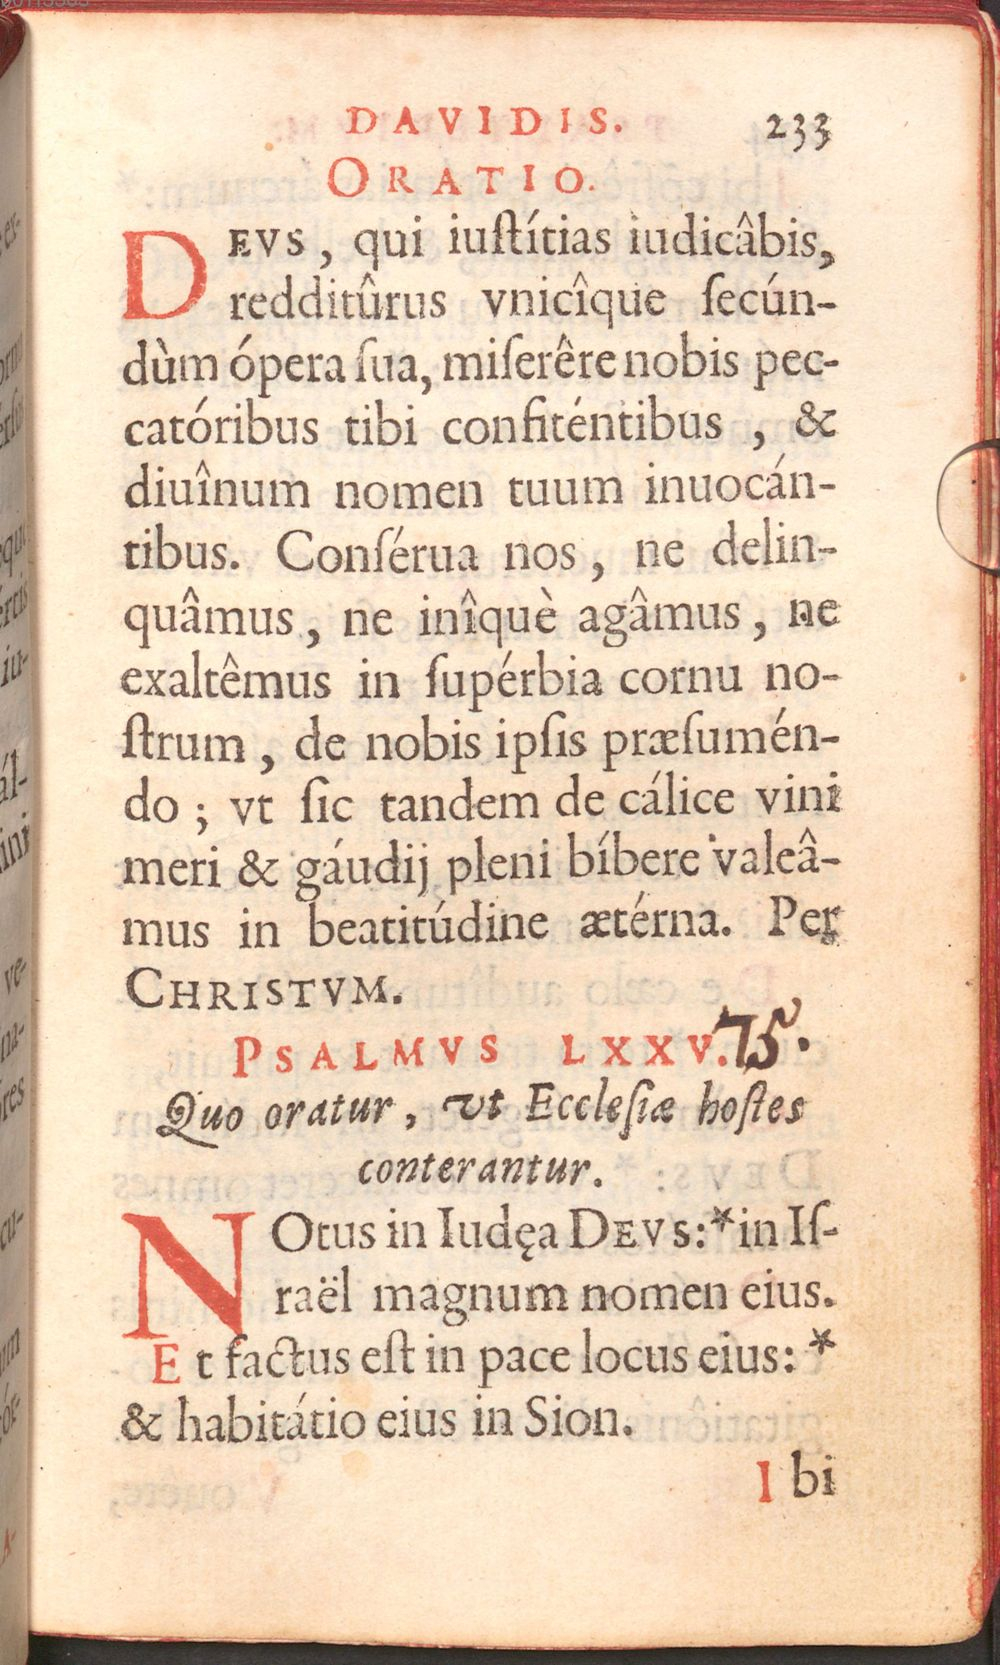 DAVIDIS. 233
ORATIO.
DEVS, qui iuſtítias iudicâbis,
redditûrus vnicîque ſecún-
dùm ópera ſua, miſerêre nobis pec-
catóribus tibi confiténtibus, &
diuînum nomen tuum inuocán-
tibus. Conſérua nos, ne delin-
quâmus, ne inîquè agâmus, ne
exaltêmus in ſupérbia cornu no-
ſtrum, de nobis ipſis præſumén-
do; vt ſic tandem de cálice vini
meri & gáudij pleni bíbere valeâ-
mus in beatitúdine ætérna. Per
CHRISTVM.
PSALMVS LXXV. 75.
Quo oratur, vt Eccleſiæ hoſtes
conterantur.
NOtus in Iudęa DEVS:* in Iſ-
raël magnum nomen eius.
Et factus eſt in pace locus eius: *
& habitátio eius in Sion.
Ibi